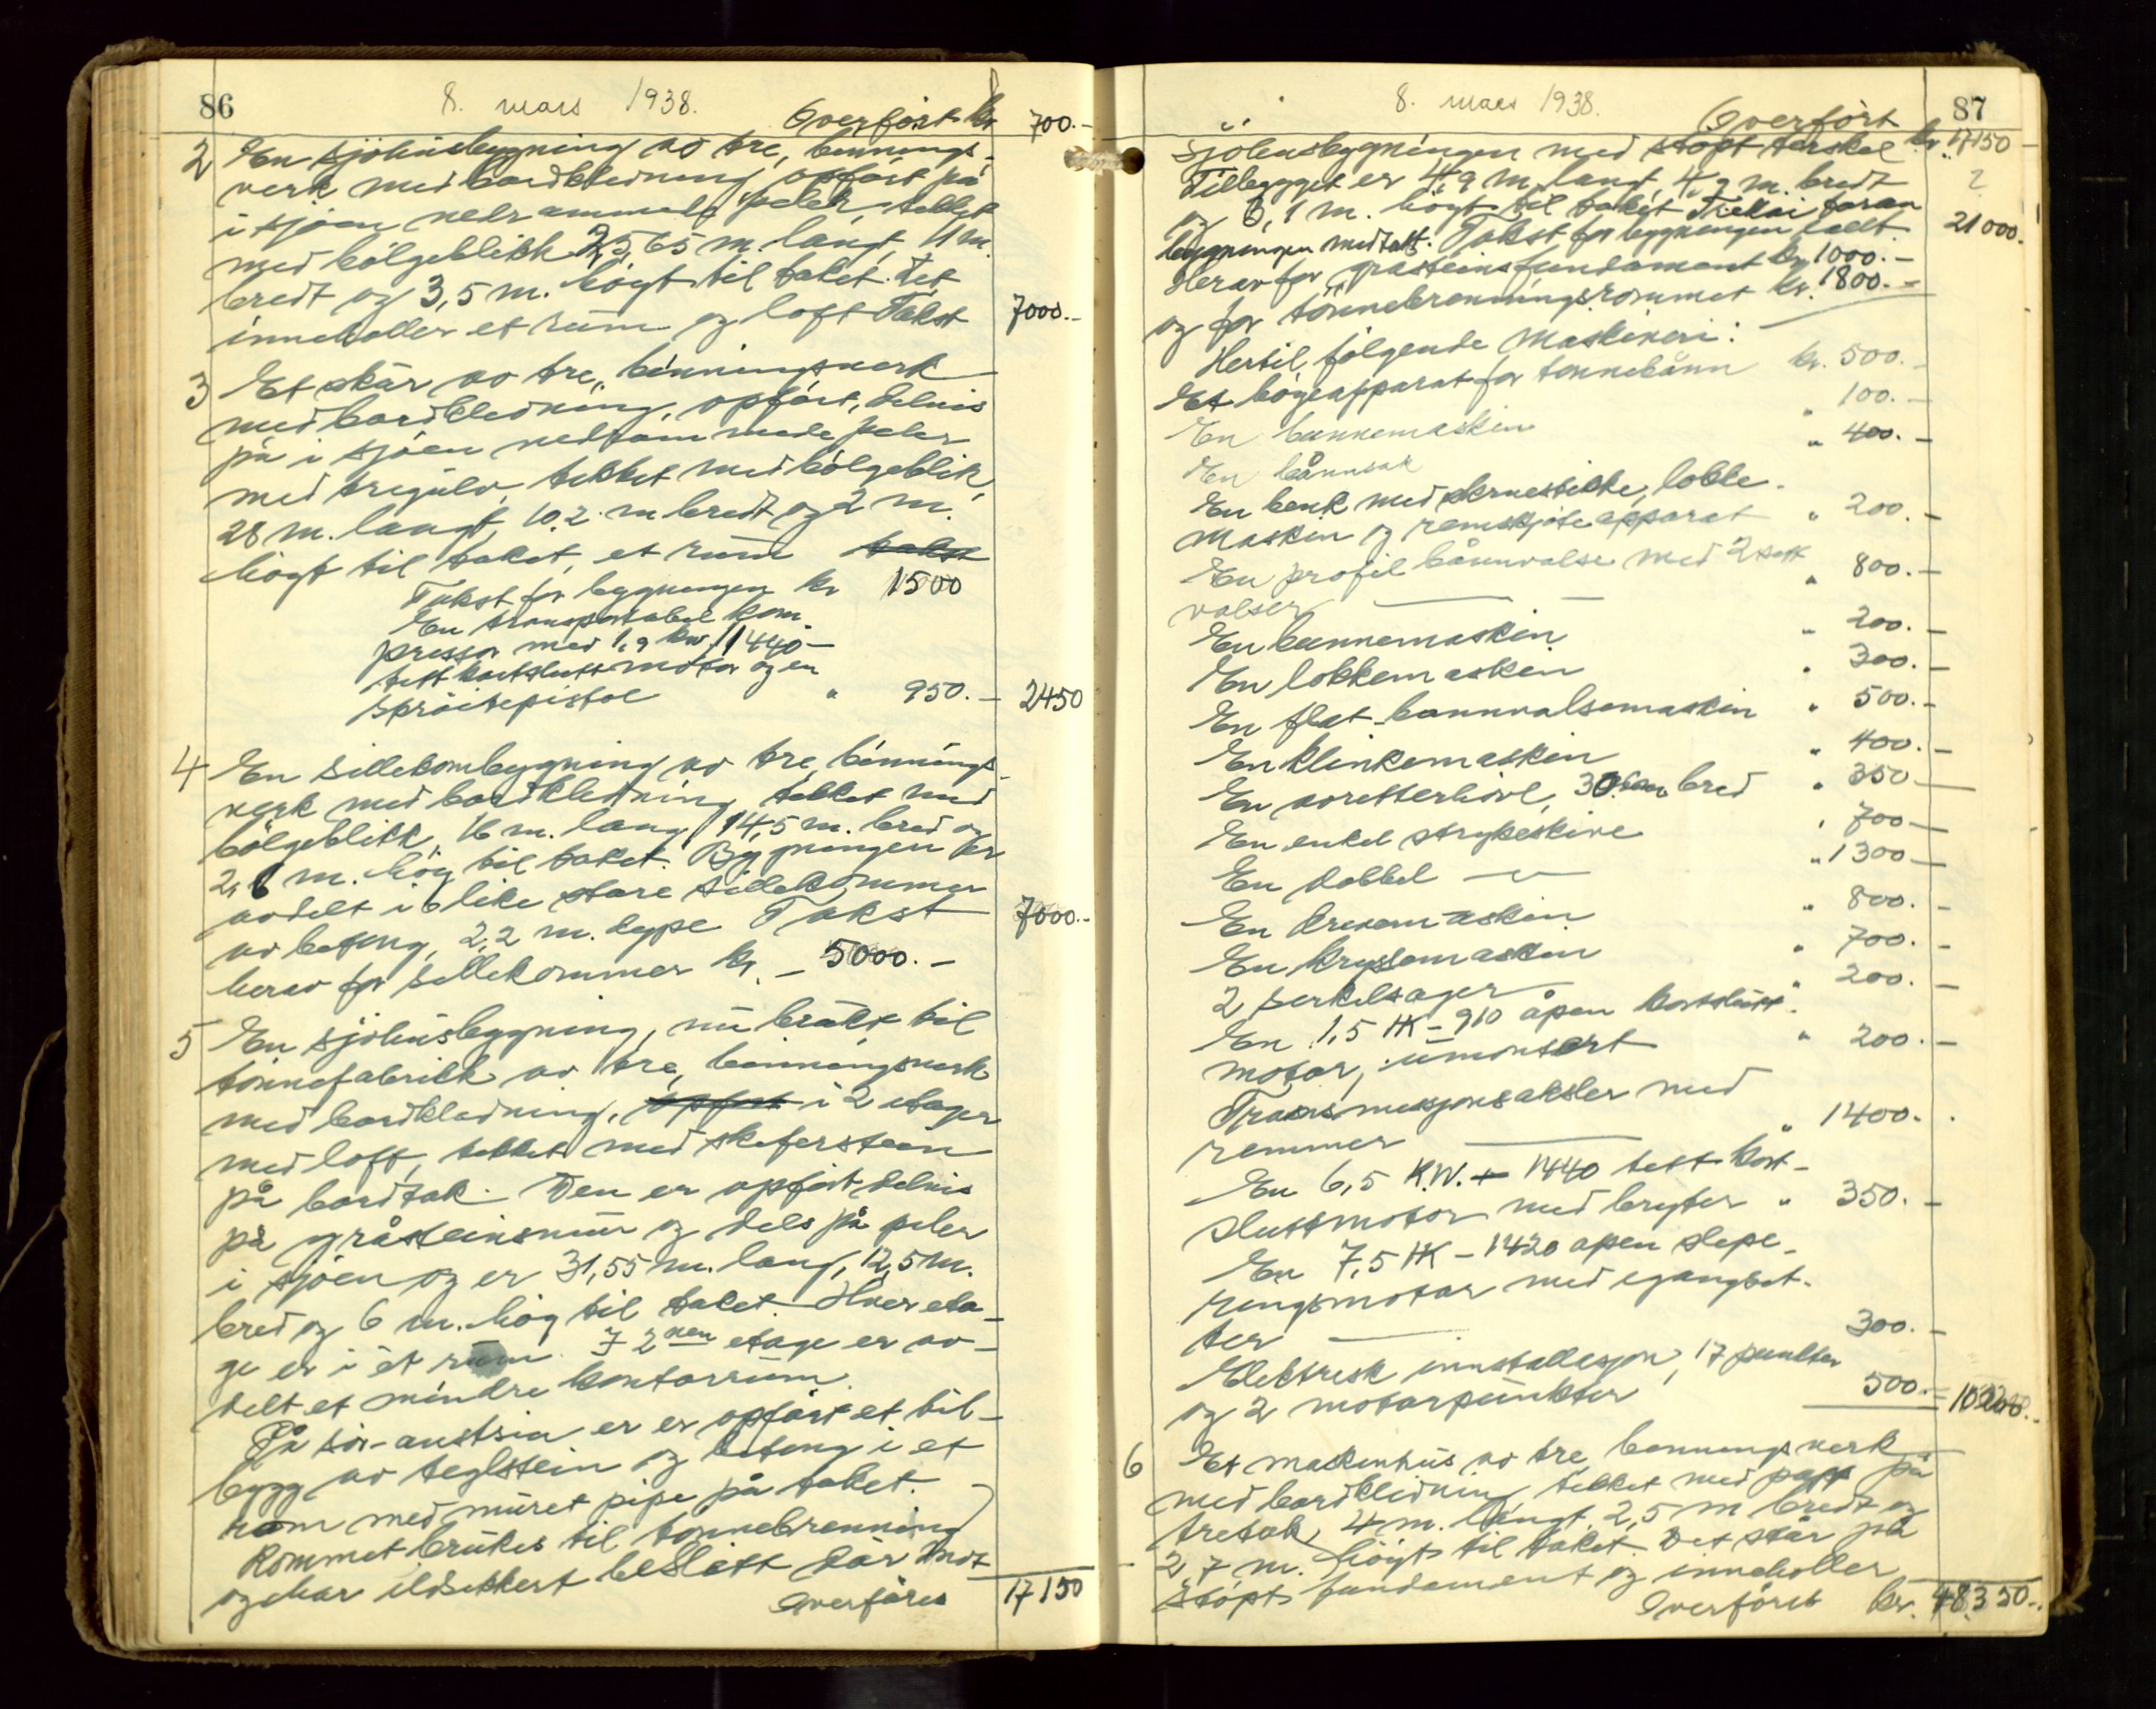 86
8. mars 1938.
Overført kr 700.-
2 En sjøhusbygning av tre, binnings-
verk med bordkledning, opført på
i sjøen nedrammede peler, tekket
med bølgeblikk 25,65 m. langt, 11 m.
bredt og 3,5 m. høgt til taket. Det
inneholler et rum og loft Takst 7000.-
3 Et skur av tre, binningsverk
med bordkledning, opført, delvis
på i sjøen nedrammede peler
med tregulv, tekket med bølgeblik,
28 m. langt, 10.2 m bredt og 2 m.
høgt til taket, et rum takst
Takst for bygningen kr 1500
En transportabel kom-
pressor med 1,9 kw 1440-
tett kortslutt motor og en
sprøitepistol " 950.- 2450
4 En sillebombygning av tre, binnings-
verk med bordkledning, tekket med
bølgeblikk, 16 m. lang 14,5 m. bred og
2,6 m. høg til taket. Bygningen er
avdelt i 6 like store sillekommer
av betong, 2,2 m. dype Takst 7000.-
herav for sillekommer kr. - 5000.-
5 En sjøhusbygning, nu brukt til
tønnefabrikk av tre, binningsverk
med bordkledning, opført i 2 etager
med loft, tekket med skiferstein
på bordtak. Den er opført, delvis
på gråsteinsmur og dels på peler
i sjøen og er 31,55 m. lang, 12,5 m.
bred og 6 m. høg til taket. Hver eta-
ge er i et rum. I 2nen etage er av-
delt et mindre kontorrum.
På sør-austsia er er opført et til-
bygg av teglstein og betong i et
rom med muret pipe på taket.
Rommet brukes til tønnebrenning
og har ildsikkert beslått dør mot
Overføres 17150
87
8. mars 1938.
Overført
sjøhusbygningen med støpt terskel kr. 17150-
Tilbygget er 4,9 m. langt, 4,9 m. bredt
og 3,1 m. høgt til taket Trekai foran
bygningen medtatt. Takst for bygningen i alt 21000.
Herav for gråsteinsfundament kr 1000.-
og for tønnebrenningsrommet kr. 1800.-
Hertil følgende maskineri:
Et bøgeapparat for tønnebånn kr. 500.-
En bunnemaskin " 100.-
En båunsak " 400.-
En benk med skruestikke, lokke-
maskin og remskjøteapparat " 200.-
En profil båunvalse med 2 sett
valser " 800.-
En bunnemaskin " 200.-
En lokkemaskin " 300.-
En flat-bannvalsemaskin " 500.-
En klinkemaskin " 400.-
En avretterhøvl, 30 cm bred " 350-
En enkel strykeskive " 700-
En dobbel -"- " 1300-
En drevemaskin " 800.-
En krysemaskin " 700.-
2 serkelsager " 200.-
En 1,5 HK - 910 åpen kortslutt.
motor, umontert " 200.-
Transmisjonsaksler med
remmer " 1400.
En 6,5 K.W. + 1440 tett kort-
sluttmotor med bryter " 350.-
En 7,5 HK - 1420 åpen slepe-
ringsmotor med igangset-
ter 300.-
Elektrisk innstallasjon, 17 punkter
og 2 motorpunkter 500.- 10200.-
6 Et maskinhus av tre, binningsverk
med bordkledning tekket med papp på
tretak, 4 m. langt, 2,5 m bredt og
2,7 m. høgt til taket Det står på
støpt fundament og inneholler
Overføres kr. 48350.-